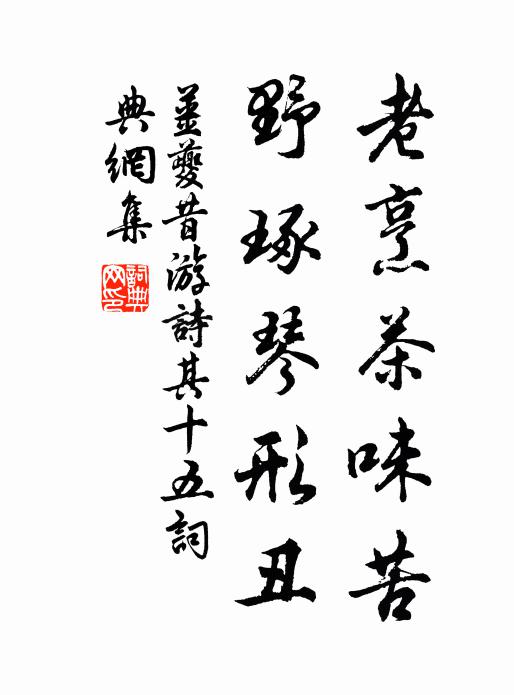 老烹茶味苦
野琢琴形丑
姜夔昔游詩其十五詞
典網集
詞典網印